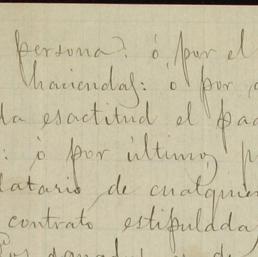 persona: ó por el
haciendas: ó por
da esactitud el pag
: ó por último, p
latario de cualquier
contrato estipulada